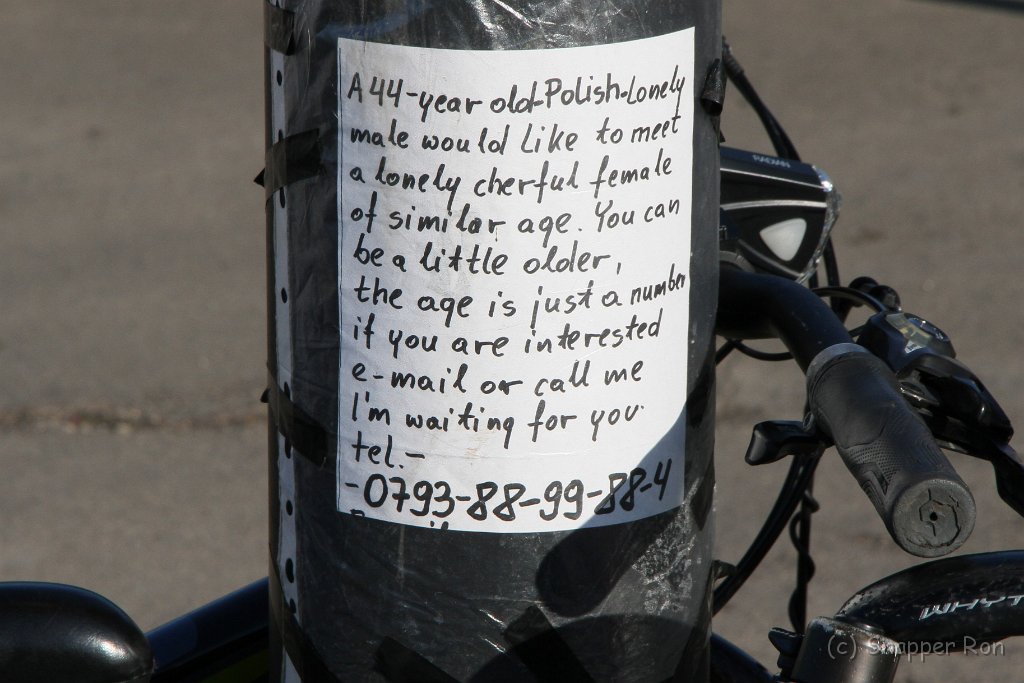 A 44-year old-Polish-Lonely
male would like to meet
a lonely cherful female
of similar age. You can
be a little older,
the age is just a number
if you are interested
e-mail or call me
I'm waiting for you.
tel.-
-0793-88-99-88-4
RADIAN
WHYT
(c) Snapper Ron